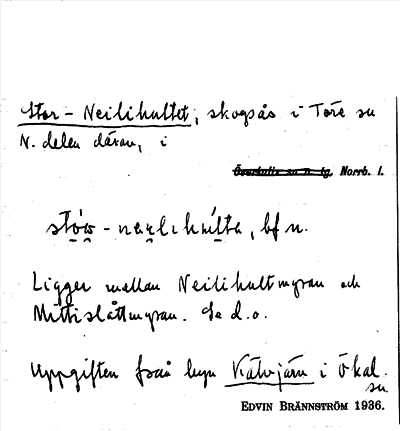 Stor-Neilihultet, skogsås i Töre sn
N. delen därav, i
Överkalix sn n. tg. Norrb. l.
bf n.
Ligger mellan Neilihultmyran och
Mittislåttmyran. Se d.o.
Uppgiften från byn Kälvjärn i Ökal.
sn
EDVIN BRÄNNSTRÖM 1936.